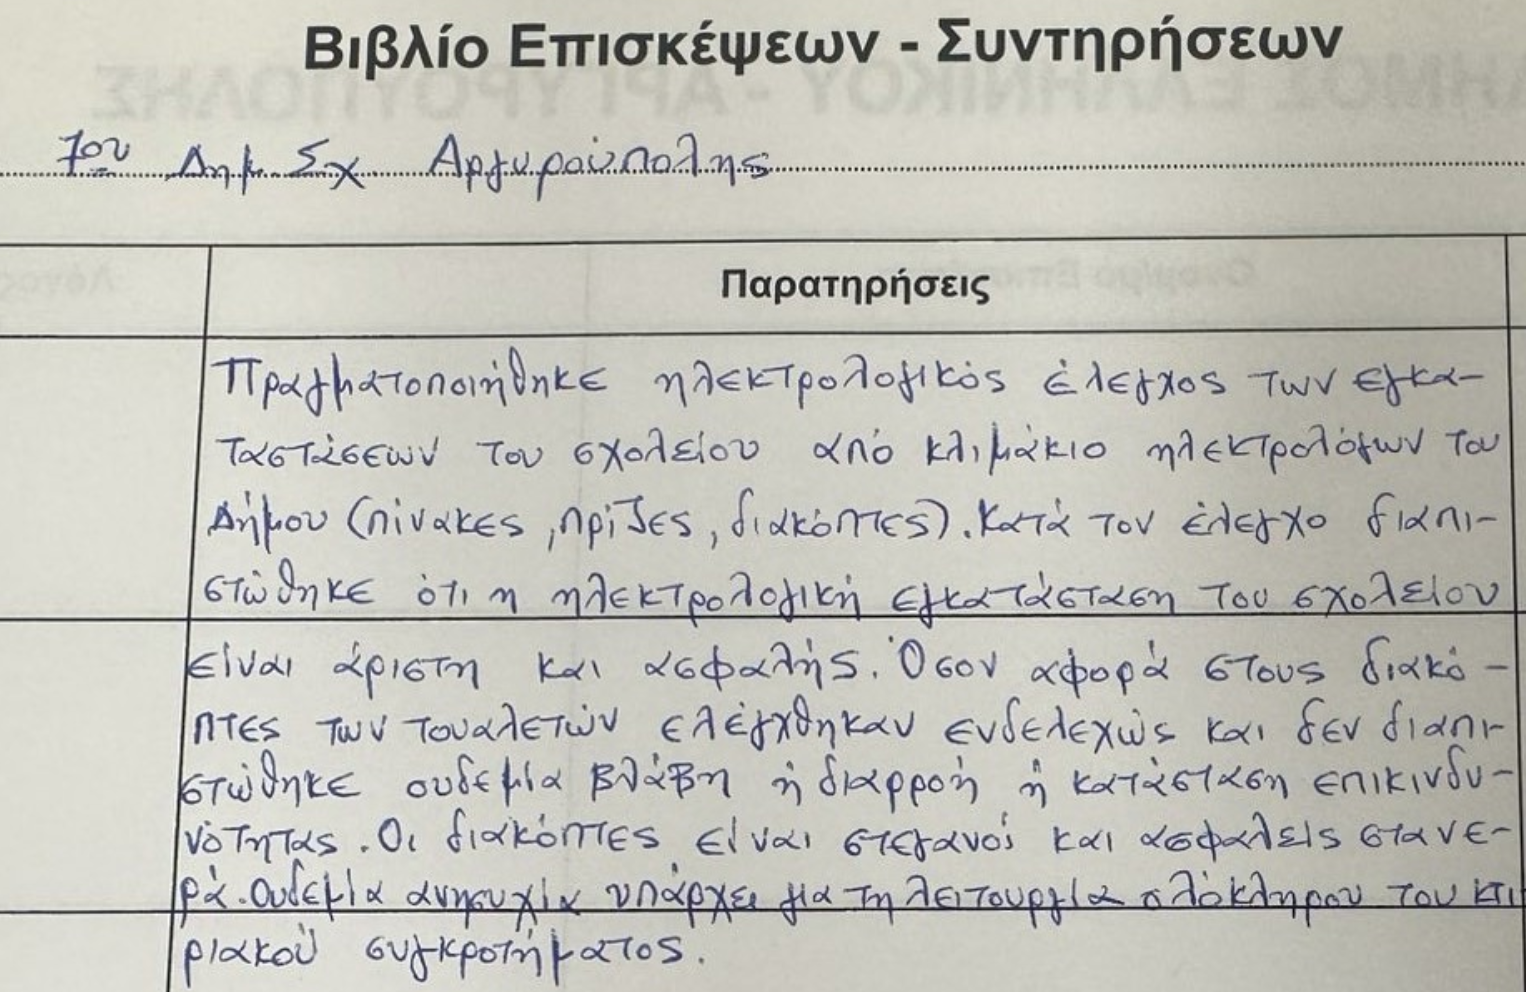 Βιβλίο Επισκέψεων - Συντηρήσεων
ΔΗΜΟΣ ΕΛΛΗΝΙΚΟΥ - ΑΡΓΥΡΟΥΠΟΛΗΣ
7ου Δημ. Σχ Αργυρούπολης
Παρατηρήσεις
Πραγματοποιήθηκε ηλεκτρολογικός έλεγχος των εγκα-
ταστάσεων του σχολείου από κλιμάκιο ηλεκτρολόγων του
Δήμου (πίνακες, πρίζες, διακόπτες). Κατά τον έλεγχο διαπι-
στώθηκε ότι η ηλεκτρολογική εγκατάσταση του σχολείου
είναι άριστη και ασφαλής. Όσον αφορά στους διακό-
πτες των τουαλετών ελέγχθηκαν ενδελεχώς και δεν διαπι-
στώθηκε ουδεμία βλάβη ή διαρροή ή κατάσταση επικινδυ-
νότητας. Οι διακόπτες είναι στεγανοί και ασφαλείς στα νε-
ρά. Ουδεμία ανησυχία υπάρχει για τη λειτουργία ολόκληρου του κτι
ριακού συγκροτήματος.